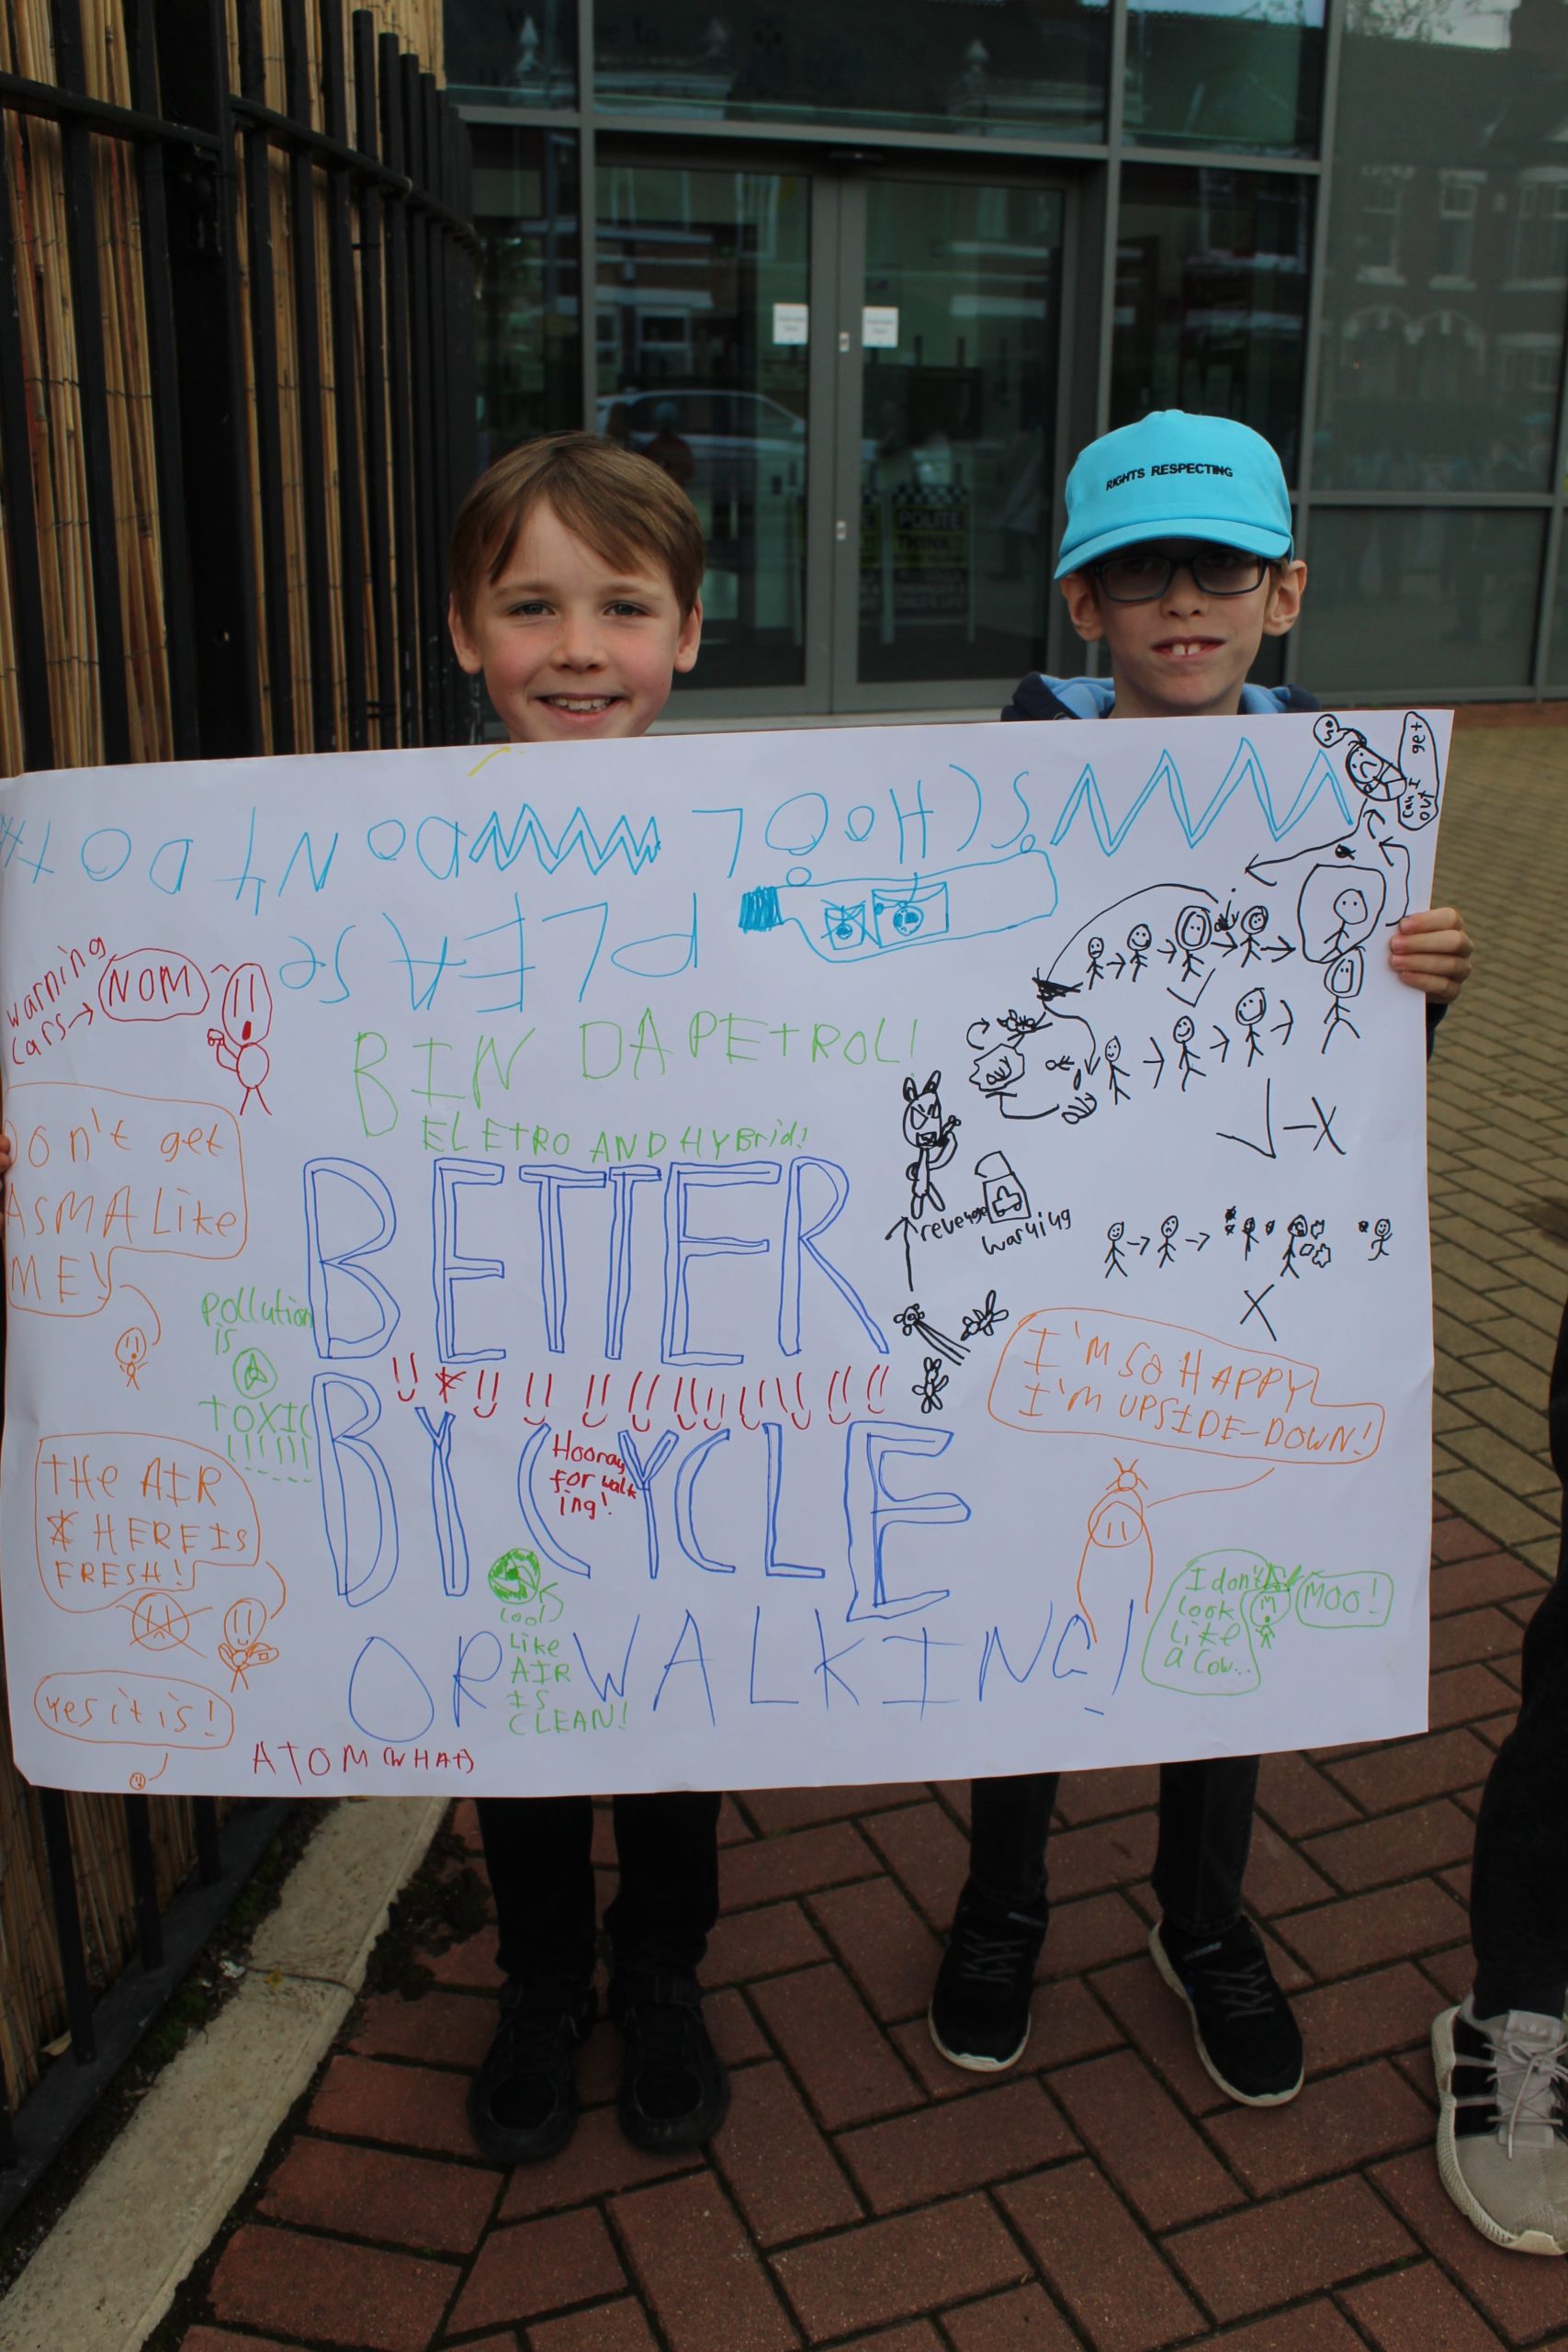 RIGHTS RESPECTING
POLITE
SCHOOL
DO NT DO
PLEASe
warning
cars→
NOM
BIN DA PETROL!
ELETRO AND HYBrid!
Don't get
ASMA Like
MEY
BETTER
BY CYCLE
OR WALKING!
Hooray
for walk
ing!
pollution
is
TOXIC
!!!!!!
THe AIR
HERE IS
FRESH!
yes it is!
ATOM (WHAT)
cool
Like
AIR
IS
CLEAN!
revenge
warning
get
out
I'M SO HAPPY
I'M UPSIDE-DOWN!
I don't
look
like
a cow...
MOO!